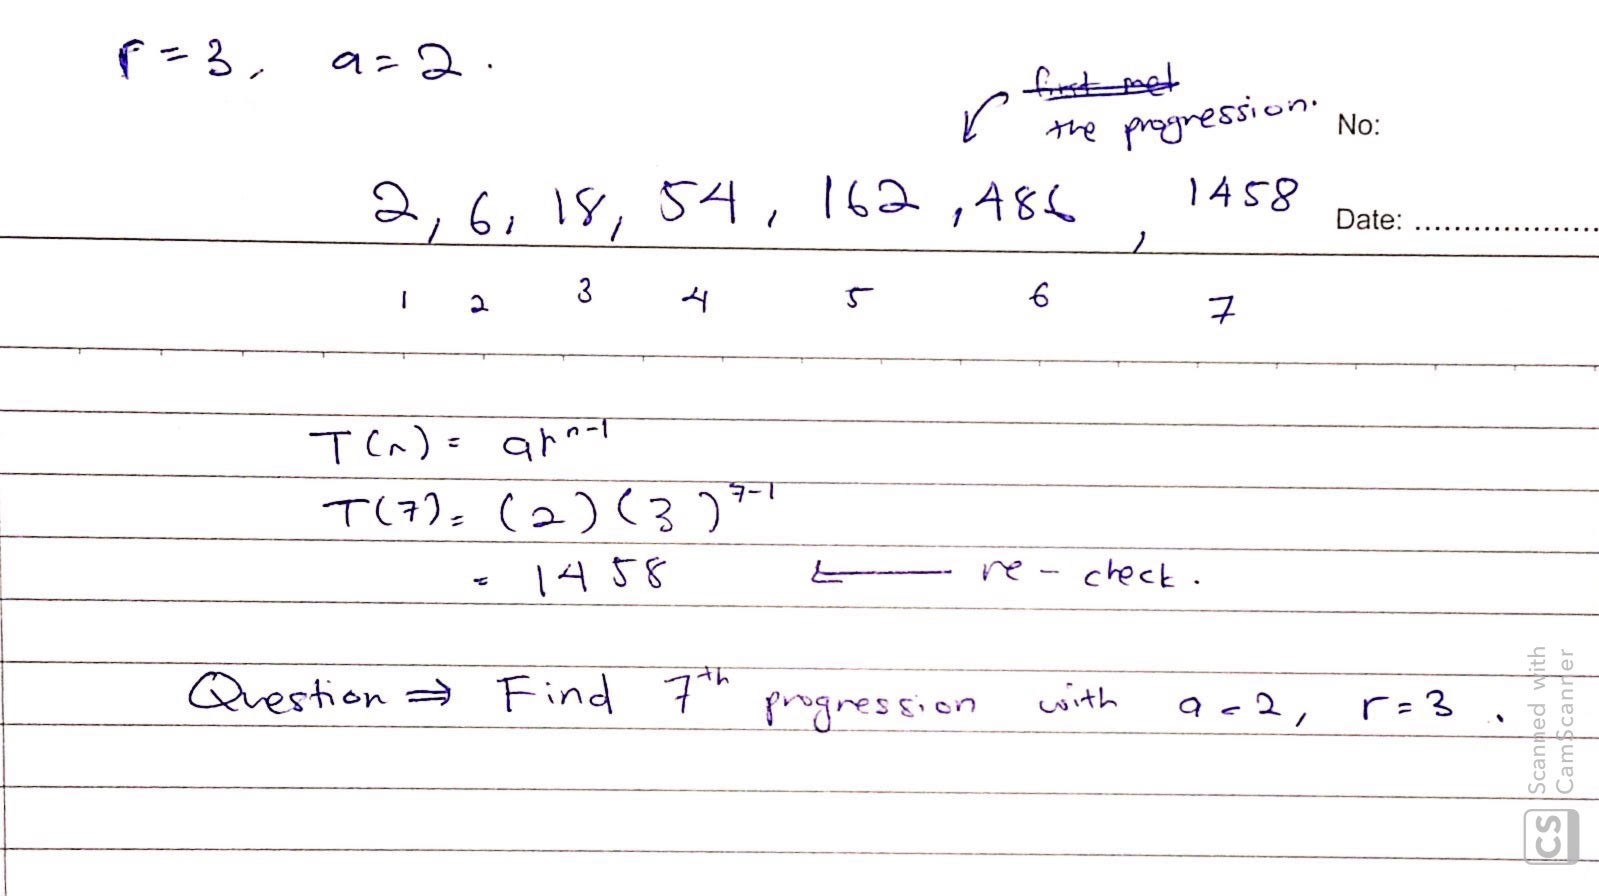 r = 3, a = 2.
first met
the progression.
No:
2, 6, 18, 54, 162, 486, 1458
Date: ....................
1 2 3 4 5 6 7
T(n) = ar^n-1
T(7) = (2)(3)^7-1
= 1458 ← re-check.
Question ⇒ Find 7th progression with a = 2, r = 3.
Scanned with
CamScanner
CS